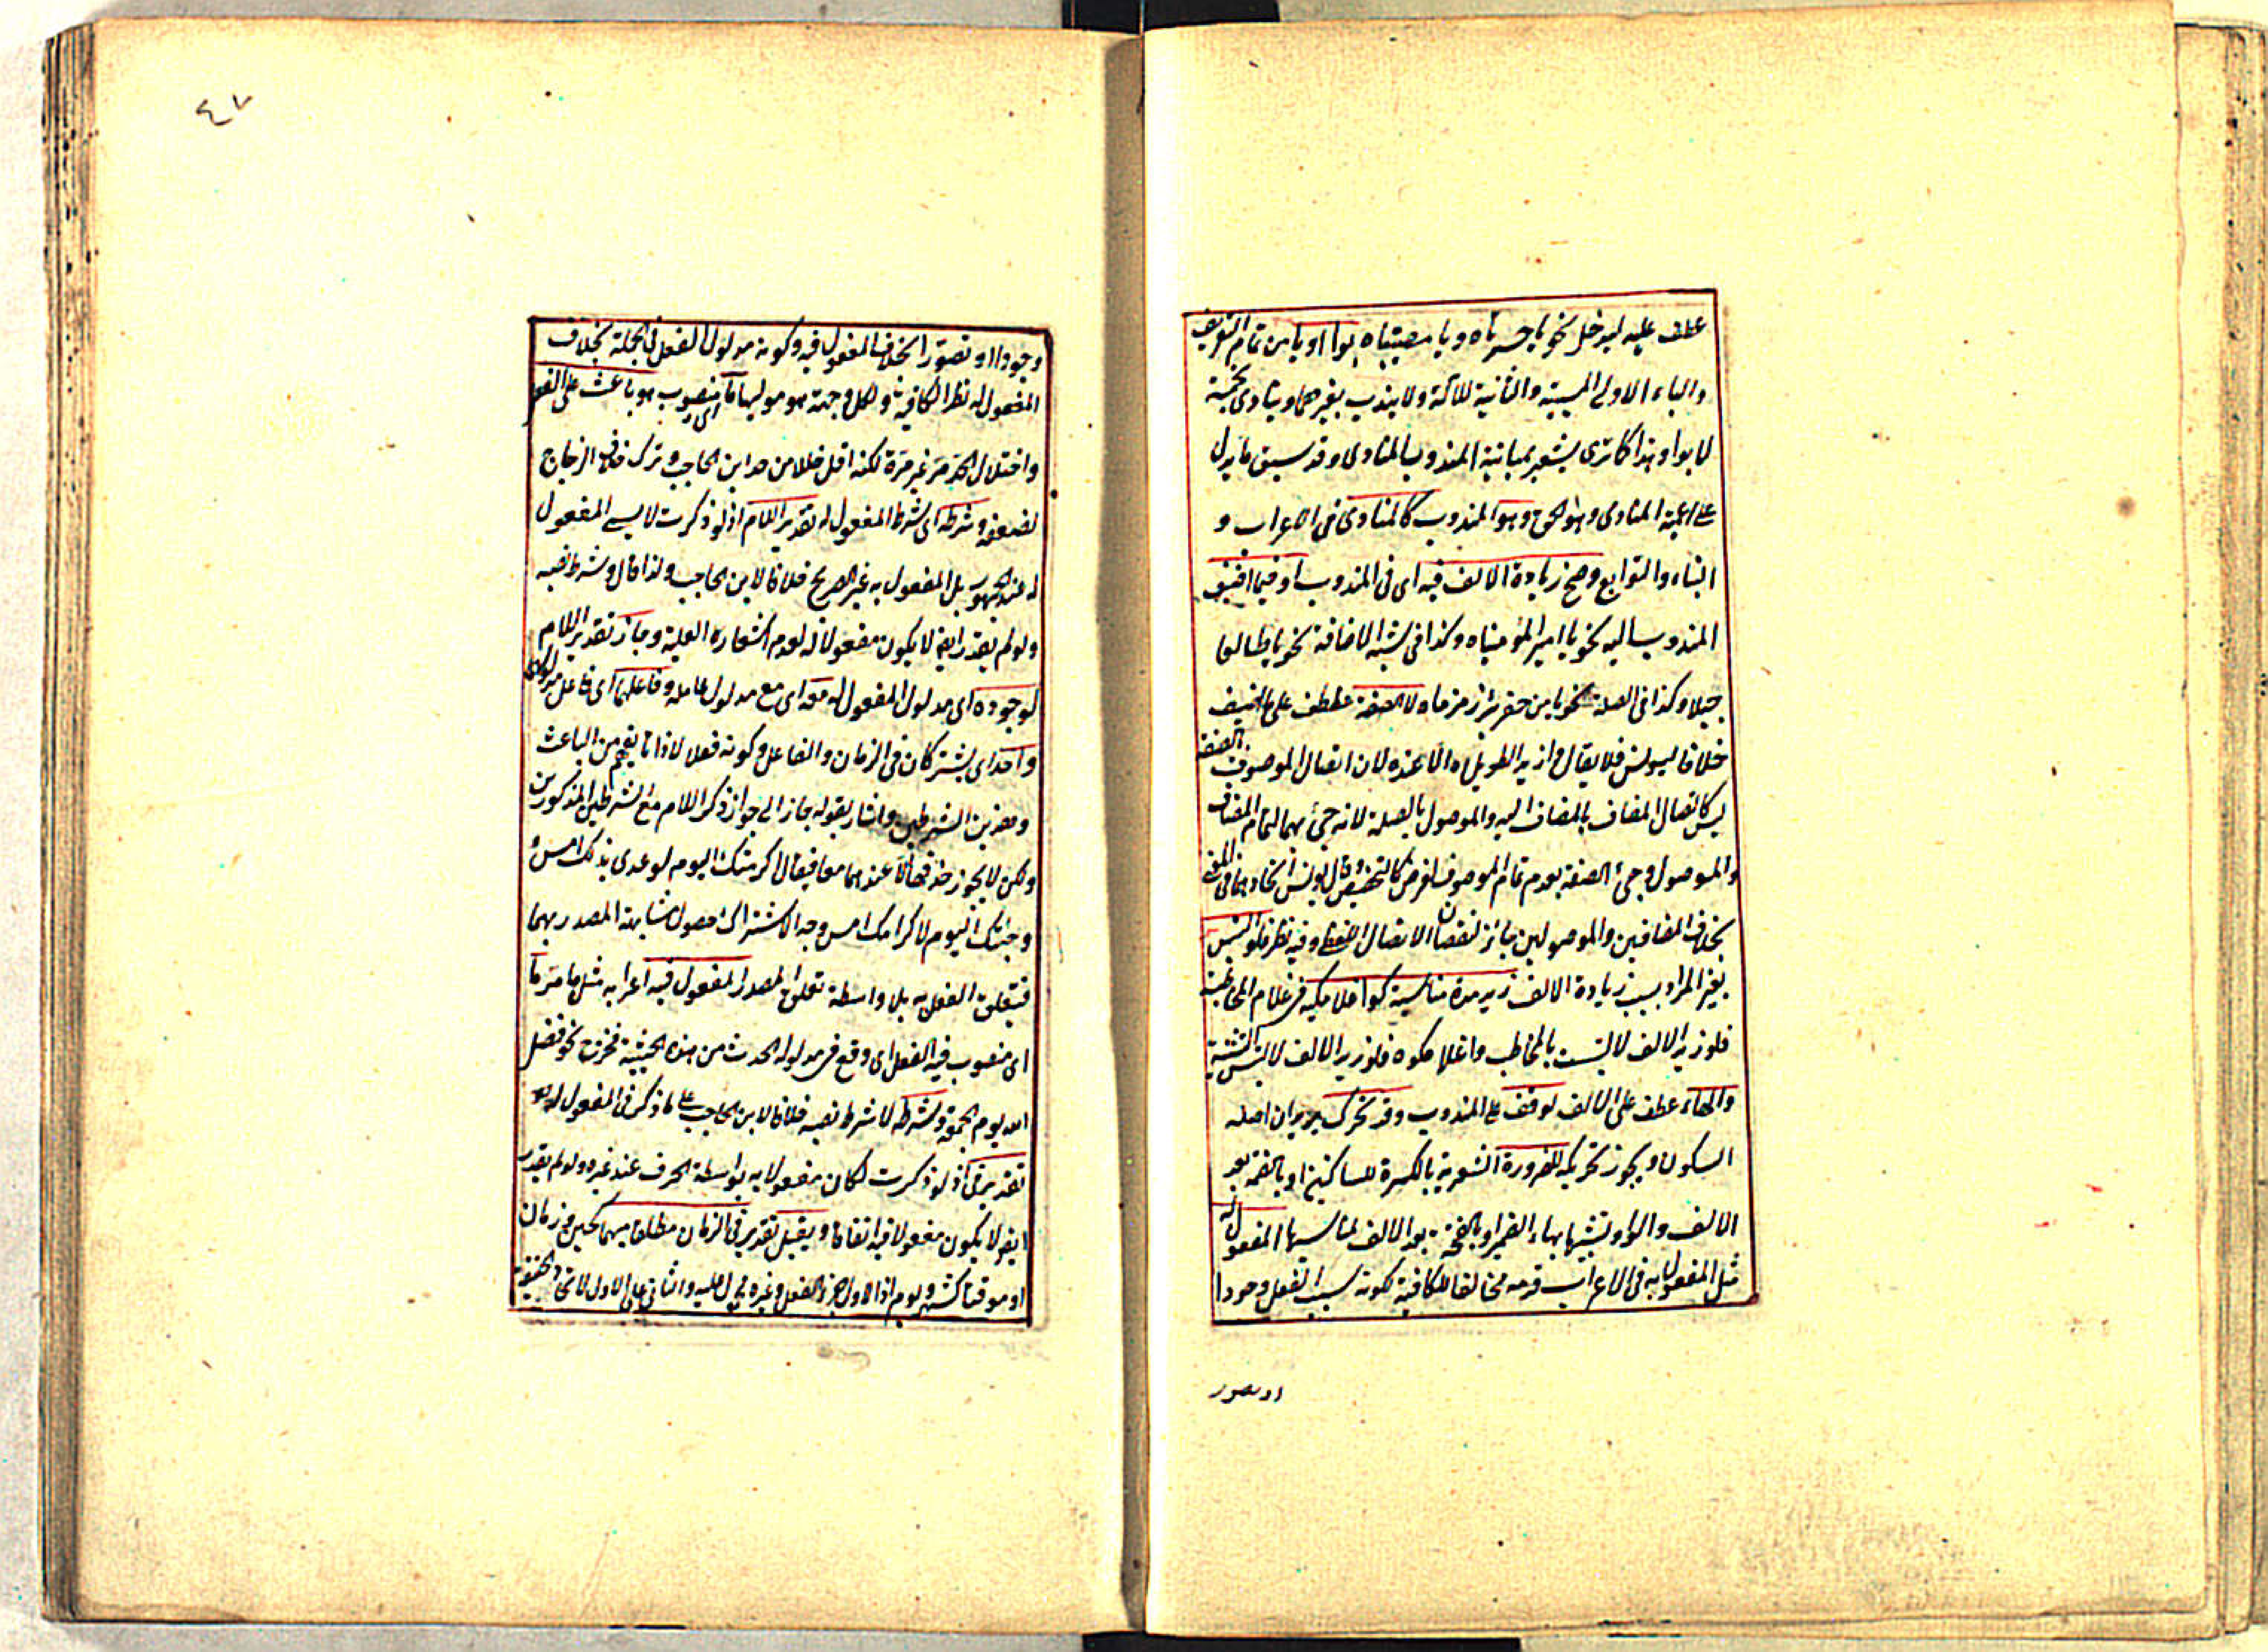 عطف عليه ليدخل نحو يا حسرتاه ويا مصيبتاه بوا او يا من تمام التعريف
والباء الاولى للسببية والثانية للآلة ولا يندب بغيرهما وينادى بخمسة
لا بوا وهذا كما ترى يشعر بمباينة المندوب للمنادى وقد سبق ما يدل
على اعمية المنادى وهو الحق وهو المندوب كالمنادى فى الاعراب و
البناء والتوابع وصح زيادة الالف فيه اى فى المندوب او فيما اضيف
المندوب اليه نحو يا امير المؤمنيناه وكذا فى شبه الاضافة نحو يا طالعا
جبلا وكذا فى الصلة نحو يا من حفر بئر زمزماه لا الصفة عطف على ما اضيف
خلافا ليونس فلا يقال وا زيد الطويلاه الا عنده لان اتصال الموصوف بالصفة
ليس كاتصال المضاف بالمضاف اليه والموصول بالصلة لانه جئ بهما لتمام المضاف
والموصول وجئ الصفة بعدم تمام الموصوف لغرض كالتخصيص وقال يونس اتحادهما فى المعنى
بخلاف المضافين والموصولين جابر لنقصان الاتصال اللفظى وفيه نظر فلو التبس
بغير المراد بسبب زيادة الالف زيد مدة مناسبة كوا غلامكيه فى غلام المخاطبة
فلو زيد الالف لالتبست بالمخاطب وا غلامكموه فلو زيد الالف لالتبس التثنية
والهاء عطف على الالف لوقف على المندوب وقد تحرك يريد ان اصله
السكون ويجوز تحريكه للضرورة الشعرية بالكسرة للساكنين او بالضمة بعد
الالف والواو تشبيها بهاء الضمير او بالفتحة بعد الالف لمناسبتها المفعول له
مثل المفعول به فى الاعراب قدمه مخالفا للكافية لكونه سبب الفعل وجودا
او تصور
٤٧
وجودا او تصورا بخلاف المفعول فيه وكونه مدلول الفعل فى الجملة بخلاف
المفعول له نظر الكافية ولكل وجهة هو موليها ما اى منصوب هو باعث على الفعل
واختلال الحد مر غير مرة لكنه اقل خللا من حد ابن الحاجب وترك خلاف الزجاج
لضعفه وشرطه اى شرط المفعول له تقدير اللام اذ لو ذكرت لا يسمى المفعول
له عند الجمهور بل المفعول به غير الصريح خلافا لابن الحاجب ولذا قال وشرط نصبه
ولو لم يقدر ايضا لا يكون مفعولا له لعدم اشعاره العلية وجاز تقدير اللام
لوجوده اى مدلول المفعول له معه اى مع مدلول عامله وفاعلهما اى فاعل مدلولى
واحد اى يشتركان فى الزمان والفاعل وكونه فعلا لا ذاتا يفهم من الباعث
وهذين الشرطين واشار بقوله جاز الى جواز ذكر اللام مع الشرطين المذكورين
ولكن لا يجوز حذفها الا عندهما معا فيقال اكرمتك اليوم لوعدى بذلك امس و
جئتك اليوم لاكرامك امس وجه الاشتراك حصول مشابهة المصدر بهما
فتعلق الفعل به بلا واسطة تعلق المصدر المفعول فيه اعرابه مثل ما مر ما
اى منصوب فيه الفعل اى وقع فى مدلوله الحدث من هذه الحيثية فخرج نحو فضل
الله يوم الجمعة وشرطه لا شرط نصبه خلافا لابن الحاجب على ما ذكر فى المفعول له
تقدير فى اذ لو ذكرت لكان مفعولا به بواسطة الحرف عند غيره ولو لم يقدر
ايضا لا يكون مفعولا فيه اتفاقا ويقبل تقدير فى الزمان مطلقا مبهما كحين وزمان
او موقتا كشهر ويوم اذ الاول جزء الفعل وغيره محمول عليه والثانى على الاول لاتحاد الحقيقة